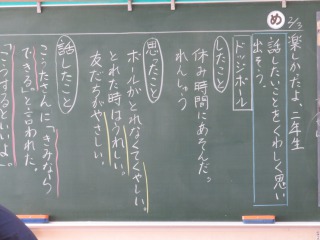 2/3
楽しかったよ、二年生
め
話したいことをくわしく思い
出そう。
ドッジボール
したこと
休み時間にあそんだ。
れんしゅう
思ったこと
ボールがとれなくてくやしい。
とれた時はうれしい。
友だちがやさしい。
話したこと
こうたさんに「きみなら
できる」と言われた。
「こうするといいよ。」